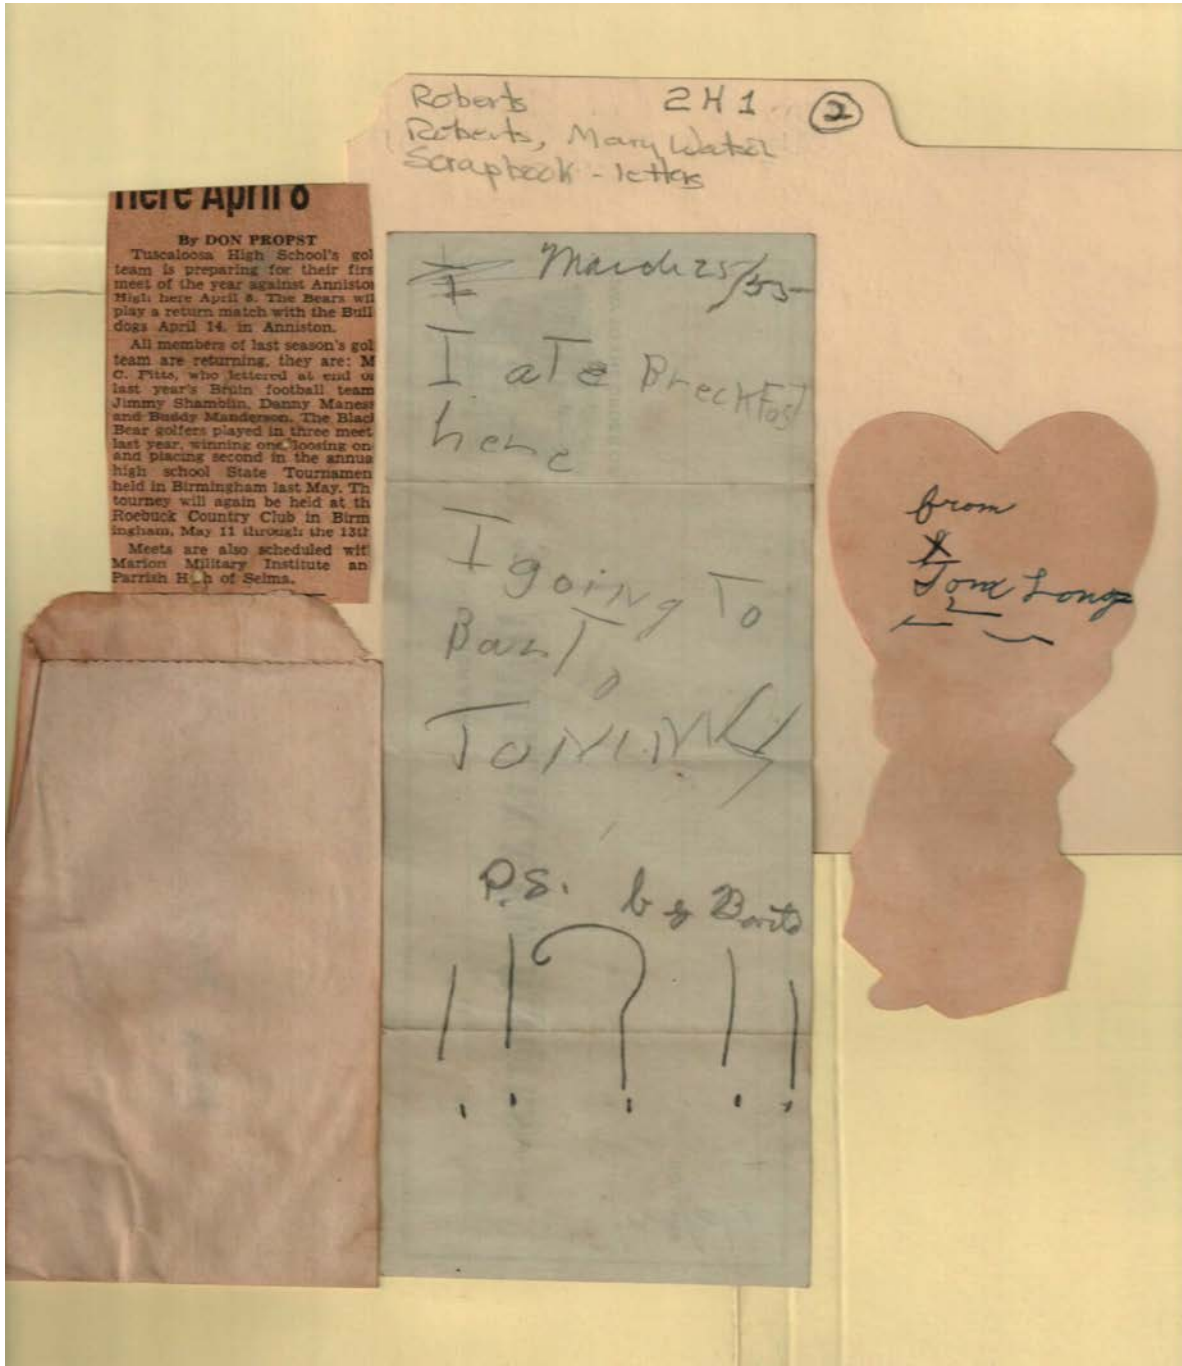 Roberts 2H1 2
Roberts, Mary Watson
Scrapbook - letters
here April 8
By DON PROPST
Tuscaloosa High School's gol
team is preparing for their firs
meet of the year against Annisto
High here April 8. The Bears wil
play a return match with the Bull
dogs April 14, in Anniston.
All members of last season's gol
team are returning, they are: M
C. Pitts, who lettered at end o
last year's Bruin football team
Jimmy Shamblin, Danny Maness
and Buddy Manderson. The Blac
Bear golfers played in three meet
last year, winning one, loosing on
and placing second in the annua
high school State Tournamen
held in Birmingham last May. Th
tourney will again be held at th
Roebuck Country Club in Birm
ingham, May 11 through the 13th
Meets are also scheduled wit
Marion Military Institute an
Parrish High of Selma.
March 25/55
I aTe BreckFast
here
I going To
TONiN
P.S. by
!! ? !!
from
Tom Long